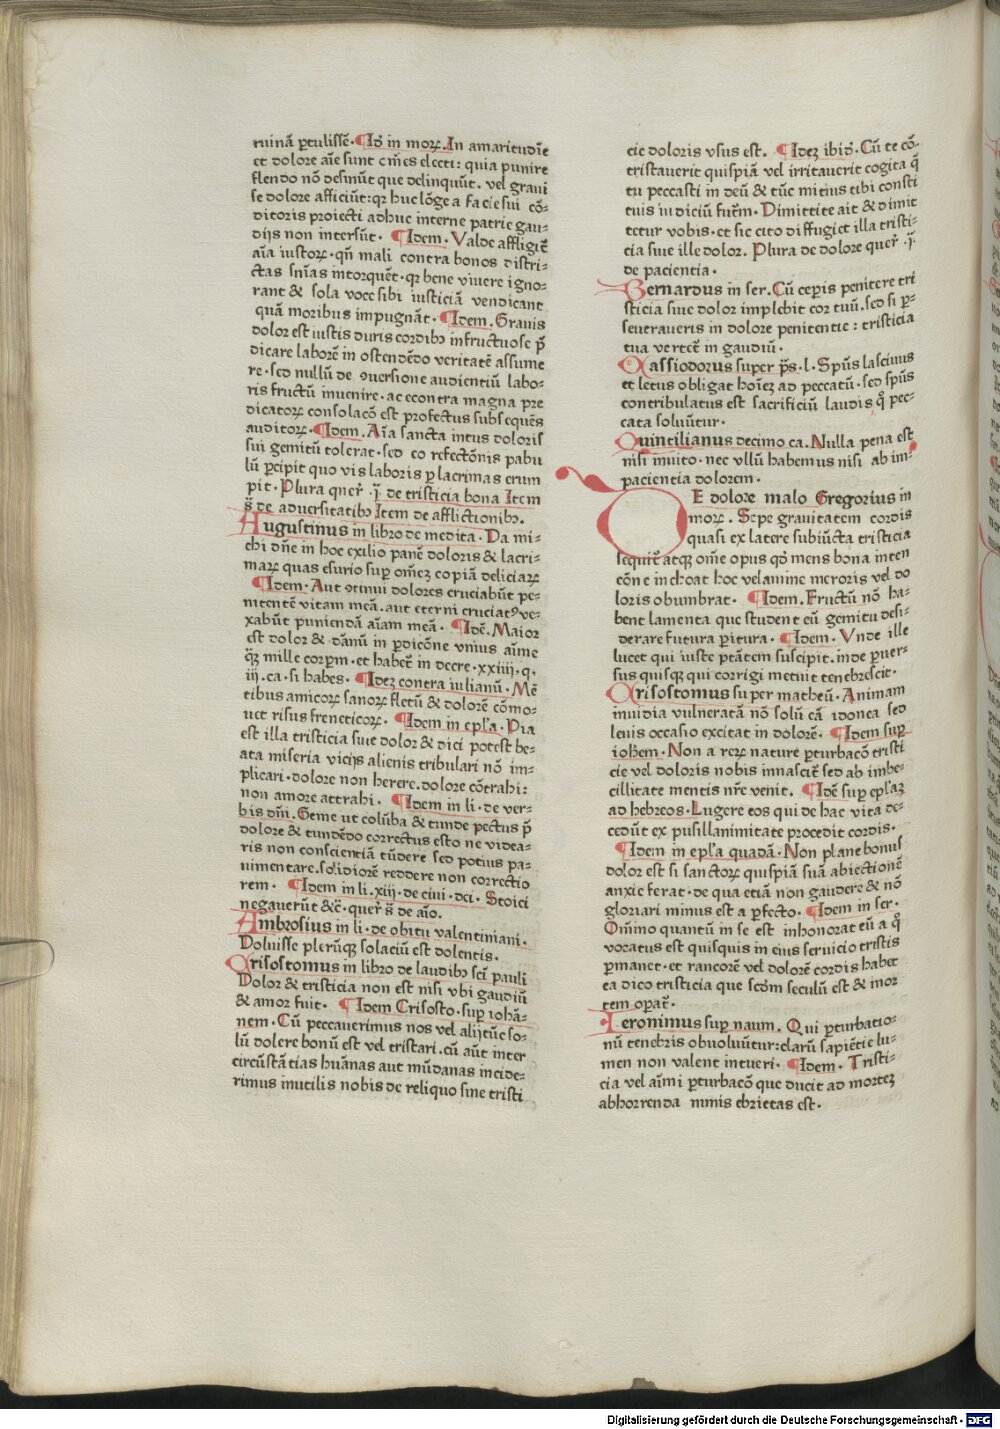 ruinā ꝑtulissē. ¶Id̄ in morꝫ. In amaritudīe
et dolore aīe sunt om̄es electi: quia punire
flendo nō desinūt que delinquūt. vel graui
se dolore afficiūt: qꝛ huc lōge a facie sui cō-
ditoris proiecti adhuc interne patrie gau-
dijs non intersūt. ¶Idem. Valde affligit̄
aīa iustorꝫ. qn̄ mali contra bonos distri-
ctas snīas intorquēt. qꝛ bene viuere igno-
rant & sola voce sibi iusticiā vendicant
quā moribus impugnāt. ¶Idem. Grauis
dolor est iustis duris cordibꝫ infructuose p̄
dicare laborē in ostendēdo veritatē assume
re. sed nullū de ꝯuersione audientiū labo-
ris fructū inuenire. ac econtra magna pre
dicatorꝫ consolacō est profectus subsequēs
auditorꝫ. ¶Idem. Aīa sancta intus doloris
sui gemitū tolerat. sed eo refectōnis pabu
lū ꝑcipit quo vis laboris ꝑ lacrimas erum
pit. Plura quer̄ .j̄. de tristicia bona Item
s̄ de aduersitatibꝫ Item de afflictionibꝫ.
Augustinus in libro de medita. Da mi-
chi dn̄e in hoc exilio panē doloris & lacri-
marꝫ quas esurio suꝑ om̄eꝫ copiā deliciarꝫ
¶Idem. Aut ꝯtinui dolores cruciabūt pe-
nitentē vitam meā. aut eterni cruciatꝰ ve-
xabūt puniendā aīam meā. ¶Idē. Maior
est dolor & dānū in ꝑdicōne vnius aīme
qꝫ mille corpꝝm. et habet̄ in decre. xxiiij. q.
iij. ca. si habes. ¶Ideꝫ contra iulianū. Mē
tibus amicorꝫ sanorꝫ fletū & dolorē cōmo-
uet risus freneticorꝫ. ¶Idem in epl̄a. Pia
est illa tristicia siue dolor & dici potest be-
ata miseria vicijs alienis tribulari nō im-
plicari. dolore non herere. dolore cōtrahi:
non amore attrahi. ¶Idem in li. de ver-
bis dn̄i. Geme ut colūba & tunde pectus p̄
dolore & tundēdo correctus esto ne videa-
ris non conscientiā tūdere sed potius pa-
uimentare. solidiorē reddere non correctio
rem. ¶Idem in li. xiij. de ciui. dei. Stoici
negauerūt &c̄. quer̄ s̄ de aīo.
Ambrosius in li. de obitu valentiniani.
Doluisse plerūqꝫ solaciū est dolentis.
Crisostomus in libro de laudibꝫ sc̄i pauli
Dolor & tristicia non est nisi vbi gaudiū
& amor fuit. ¶Idem Crisosto. suꝑ iohā-
nem. Cū peccauerimus nos vel alij tūc so-
lū dolere bonū est vel tristari. cū aūt inter
circūstātias huānas aut mūdanas incide-
rimus inutilis nobis de reliquo sine tristi
cie doloris vsus est. ¶Ideꝫ ibid̄. Cū te cō-
tristauerit quispiā vel irritauerit cogita q̄
tu peccasti in deū & tūc mitius tibi consti
tuis iudiciū futꝝm. Dimittite ait & dimit
tetur vobis. et sic cito diffugiet illa tristi-
cia siue ille dolor. Plura de dolore quer̄ .j̄.
de paciencia.
Bernardus in ser. Cū ceperis penitere tri
sticia siue dolor implebit cor tuū. sed si ꝑ-
seueraueris in dolore penitentie: tristicia
tua vertet̄ in gaudiū.
Cassiodorus super p̄s. l. Spūs lasciuus
et letus obligat hoīeꝫ ad peccatū. sed spūs
contribulatus est sacrificiū laudis q̊ pec-
cata soluūtur.
Quintilianus decimo ca. Nulla pena est
nisi inuito. nec vllū habemus nisi ab im-
paciencia dolorem.
DE dolore malo Gregorius in
morꝫ. Sepe grauitatem cordis
quasi ex latere subiūcta tristicia
sequit̄ atqꝫ om̄e opus qd̄ mens bona inten
cōne inchoat hoc velamine meroris vel do
loris obumbrat. ¶Idem. Fructū nō ha-
bent lamenta que student eū gemitu desi-
derare futura ꝑitura. ¶Idem. Vnde ille
lucet qui iuste ptātem suscipit. inde ꝑuer-
sus quisqꝫ qui corrigi metuit tenebrescit.
Crisostomus super matheū. Animam
inuidia vulneratā nō solū cā idonea sed
lenis occasio excitat in dolorē. ¶Idem suꝑ
ioh̄em. Non a rerꝫ nature ꝑturbacō tristi
cie vel doloris nobis innascit̄ sed ab imbe-
cillitate mentis nr̄e venit. ¶Idē suꝑ epl̄aꝫ
ad hebreos. Lugere eos qui de hac vita de-
cedūt ex pusillanimitate procedit cordis.
¶Idem in epl̄a quadā. Non plane bonus
dolor est si sanctorꝫ quispiā suā abiectionē
anxie ferat. de qua etiā non gaudere & nō
gloriari minus est a ꝑfecto. ¶Idem in ser.
Om̄ino quantū in se est inhonorat eū a q̊
vocatus est quisquis in eius seruicio tristis
ꝑmanet. et rancorē vel dolorē cordis habet
ea dico tristicia que scd̄m seculū est & mor
tem oꝑat̄.
Ieronimus suꝑ naum. Qui ꝑturbatio-
nū tenebris obuoluūtur: clarū sapiētie lu-
men non valent intueri. ¶Idem. Tristi-
cia vel aīmi ꝑturbacō que ducit ad morteꝫ
abhorrenda nimis ebrietas est.
Digitalisierung gefördert durch die Deutsche Forschungsgemeinschaft - DFG